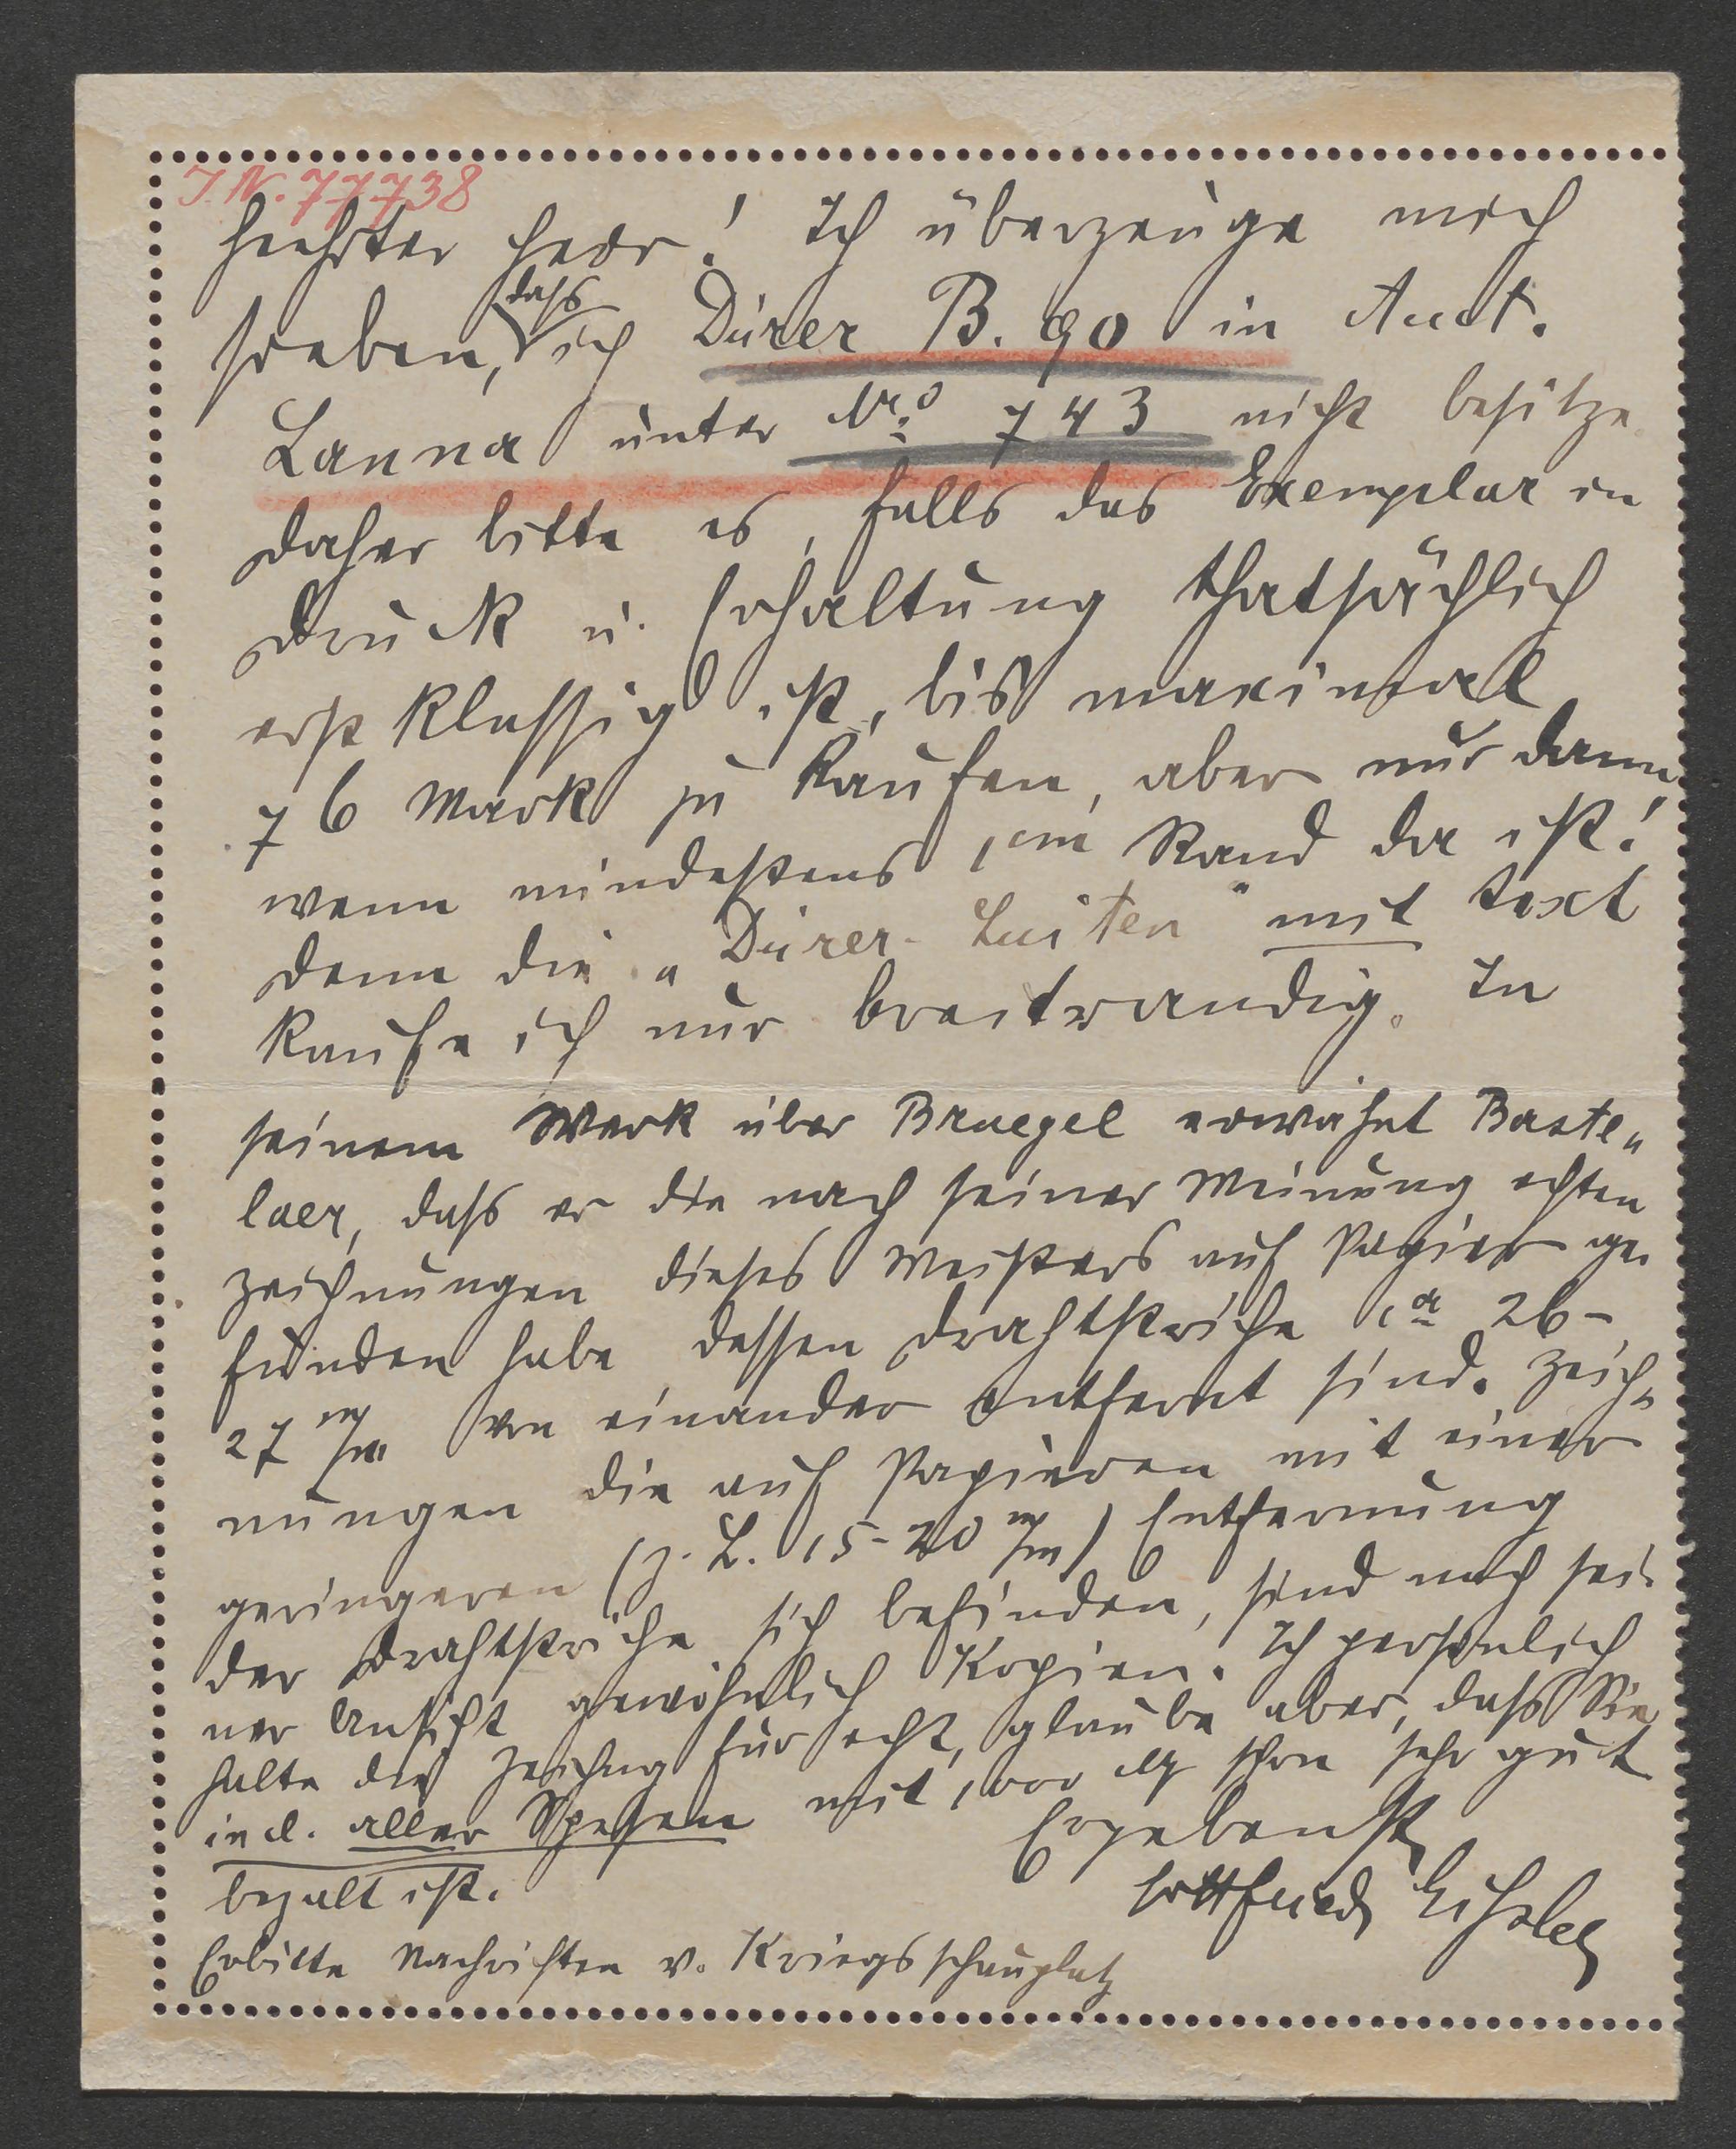 I. N. 77738
Geehrter Herr! Ich überzeuge mich
soeben, dass ich Dürer B. 90 in Auct.
Lanna unter Nro 743 nicht besitze
daher bitte es, falls das Exemplar in
Druck u. Erhaltung thatsächlich
erstklassig ist, bis maximal
76 Mark zu kaufen, aber nur dann,
wenn mindestens 1 cm Rand da ist!
denn die "Dürer-Suiten" mit Text
kaufe ich nur breitrandig. In
seinem Werk über Bruegel erwähnt Baste„
laer, dass er die nach seiner Meinung echten
Zeichnungen dieses Meisters auf Papier ge-
funden habe dessen Drahtstriche ca 26-
27 m/m von einander entfernt sind. Zeich„
nungen die auf Papieren mit einer
geringeren (z. B. 15-20 m/m) Entfernung
der Drahtstriche sich befinden, sind nach sei-
ner Ansicht gewöhnlich Kopien. Ich persönlich
halte die Zeichng für echt, glaube aber, dass Sie
incl. aller Spesen mit 1000 M schon sehr gut
bezalt ist.
Ergebenst
Gottfried Eissler
Erbitte Nachrichten v. Kriegsschauplatz